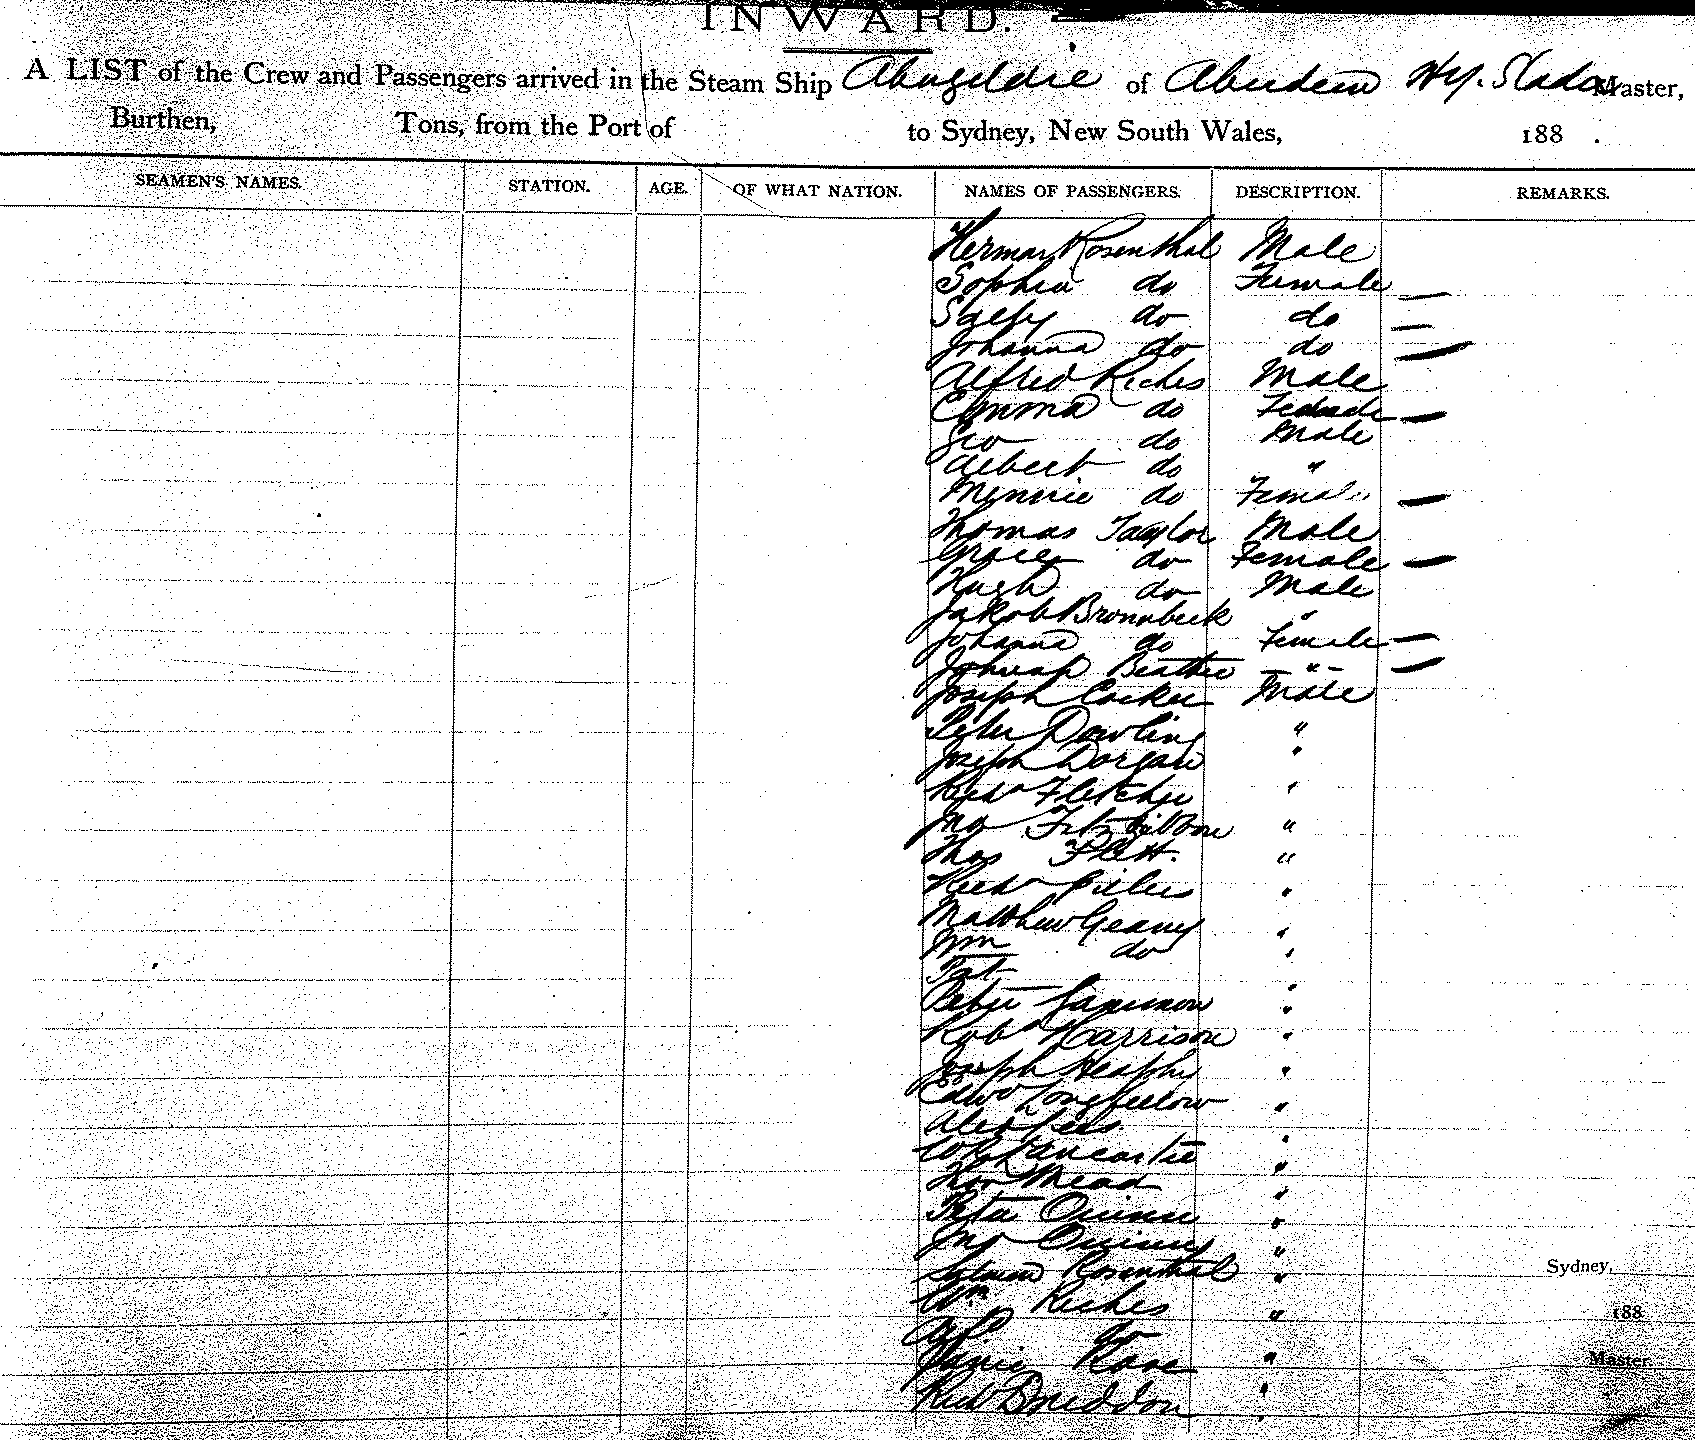 INWARD.
A LIST of the Crew and Passengers arrived in the Steam Ship Abergeldie of Aberdeen Hy. Slader Master,
Burthen, Tons, from the Port of to Sydney, New South Wales, 188 .
SEAMEN'S NAMES. STATION. AGE. OF WHAT NATION. NAMES OF PASSENGERS. DESCRIPTION. REMARKS.
Herman Rosenthal Male
Sophia do Female —
do do —
Johanna do do —
Alfred Riches Male
Emma do Female —
Geo do Male
Albert do "
Minnie do Female —
Thomas Taylor Male
Grace do Female —
Hugh do Male
Jakob Bronnbeck "
Johanna do Female —
Beattie — " — —
Joseph Cocker Male
Peter Dowling "
Joseph Dorgan "
Richd Fletcher "
Jno Fitzgibbon "
Thos Flett. "
Richd Giles "
Matthew Geany "
Wm do "
Pat "
Peter "
Robt Harrison "
Joseph Heaphy "
Edwd Longfellow "
Alex Lees "
Lancaster "
Mead "
Peter Quinn "
Jno "
Rosenthal "
Wm Riches "
Alf do "
Kane "
Richd Sneddon "
Sydney,
188
Master.